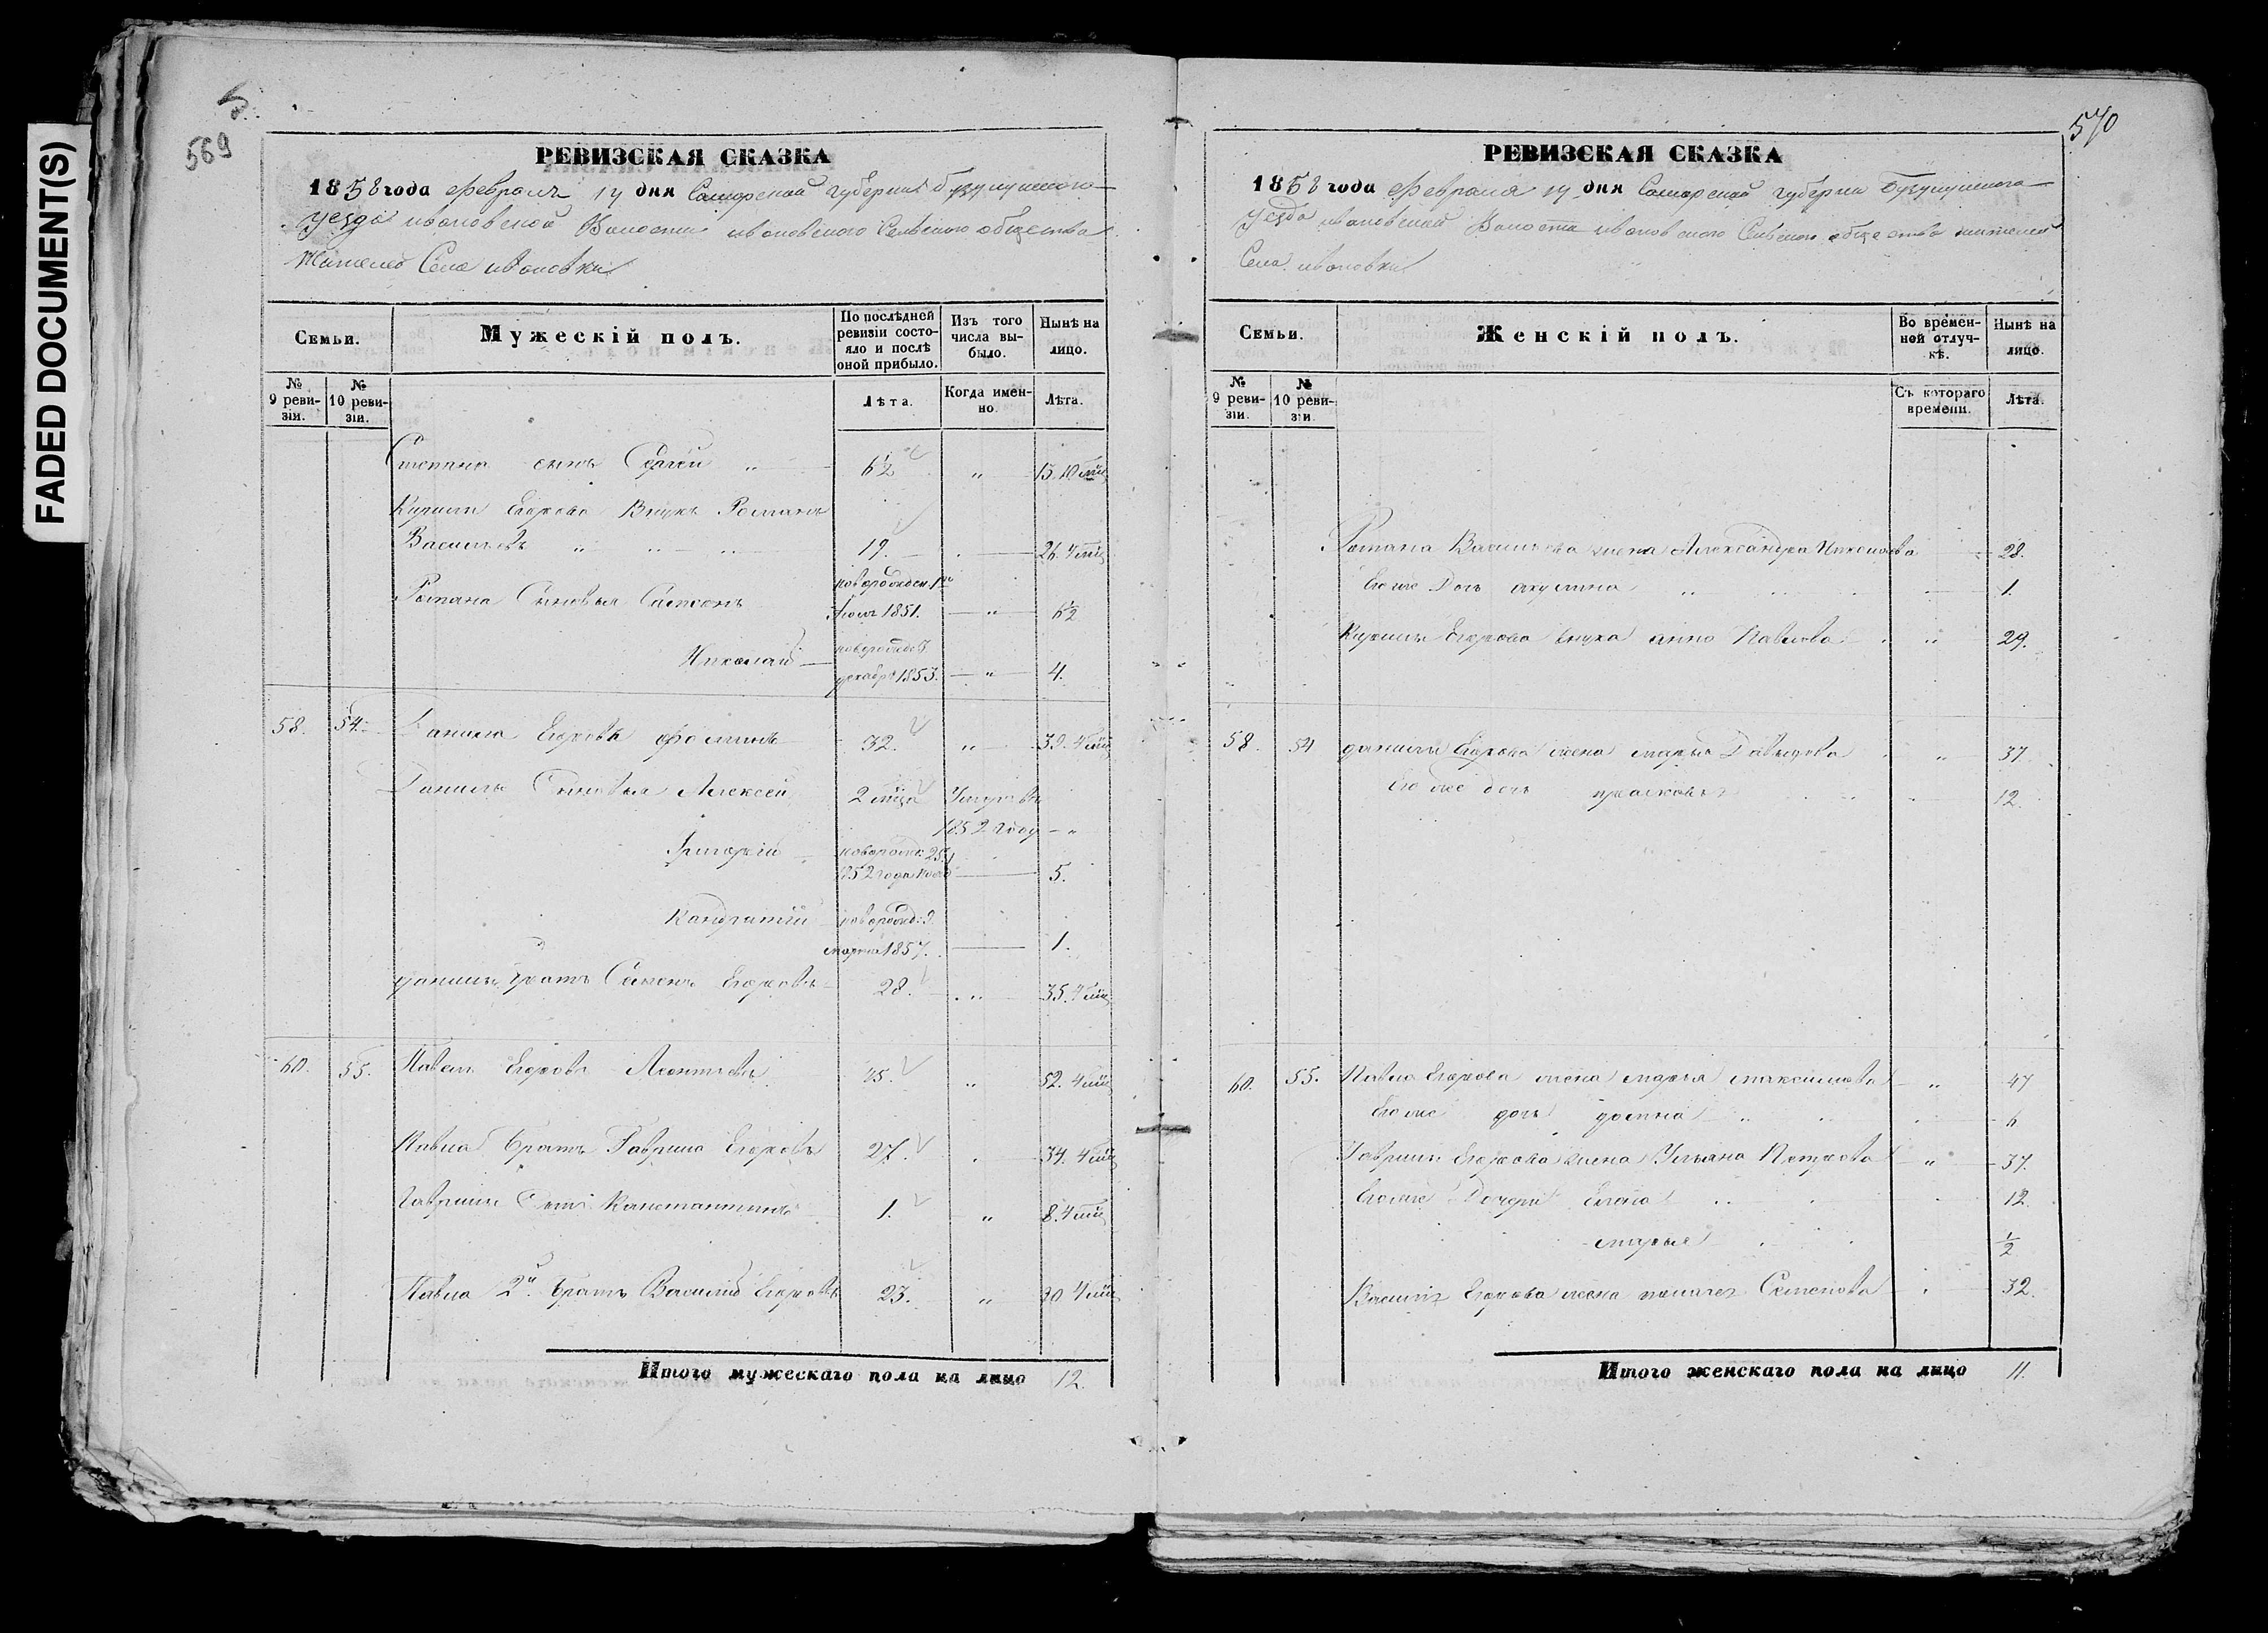 FADED DOCUMENT(S)
569
РЕВИЗСКАЯ СКАЗКА
1858 года Февраля 14 дня Самарской губернии Бузулукского
уезда ивановской Волости ивановского Сельского общества
Жителей Села ивановки
Семьи.
Мужескій полъ.
По послѣдней ревизіи состояло и послѣ оной прибыло.
Изъ того числа выбыло.
Нынѣ на лицо.
№ 9 ревизіи.
№ 10 ревизіи.
Лѣта.
Когда именно.
Лѣта.
Степана сынъ Сергей " 6½ " 13. 10 мѣс
Кирилы Егорова Внукъ Романъ
Васильевъ " 19. 26. 4 мѣс
Романа Сыновья Самсонъ новорожден 1851. " 6½
Николай новорожд. декабр 1853. " 4.
58. 54. Данила Егоровъ Фоминъ 32. " 39. 4 мѣс
Данилы Сыновья Алексей 2 мѣца Умеръ въ
1852 году "
Григорій новорожд: 25 1852 года 5.
Кандратій новорожд: 9. марта 1857. 1.
данилы братъ Семенъ Егоровъ 28. " 35. 4 мѣс
60. 55. Павелъ Егоровъ Леонтьевъ 45. " 52. 4 мѣс
Павла братъ Гаврила Егоровъ 27. 34. 4 мѣс
Гаврилы Сынъ Констант­инъ 1. " 8. 4 мѣс
Павла 2й братъ Василій Егоровъ 23. " 30 4 мѣс
Итого мужескаго пола на лицо 12.
570
РЕВИЗСКАЯ СКАЗКА
1858 года Февраля 14 дня Самарской губернии Бузулукского
Уезда ивановской Волости ивановского Сельского общества жителей
Села ивановки
Семьи.
Женскій полъ.
Во временной отлучкѣ.
Нынѣ на лицо.
№ 9 ревизіи.
№ 10 ревизіи.
Съ котораго времени.
Лѣта.
Романа Васильева жена Александра Николаева 28.
Его же Дочь акулина " 1.
Кирилы Егорова внука анна Павлова " 29.
58. 54 данилы Егорова жена марья Давыдова " 37
Его же дочь прасковья " 12.
60. 55. Павла Егорова жена марья максимова " 47
Его же дочь домна " 6
Гаврилы Егорова жена Ульяна Петрова " 37.
Его же Дочери Елена 12.
марья ½
Василія Егорова жена Семенова 32.
Итого женскаго пола на лицо 11.